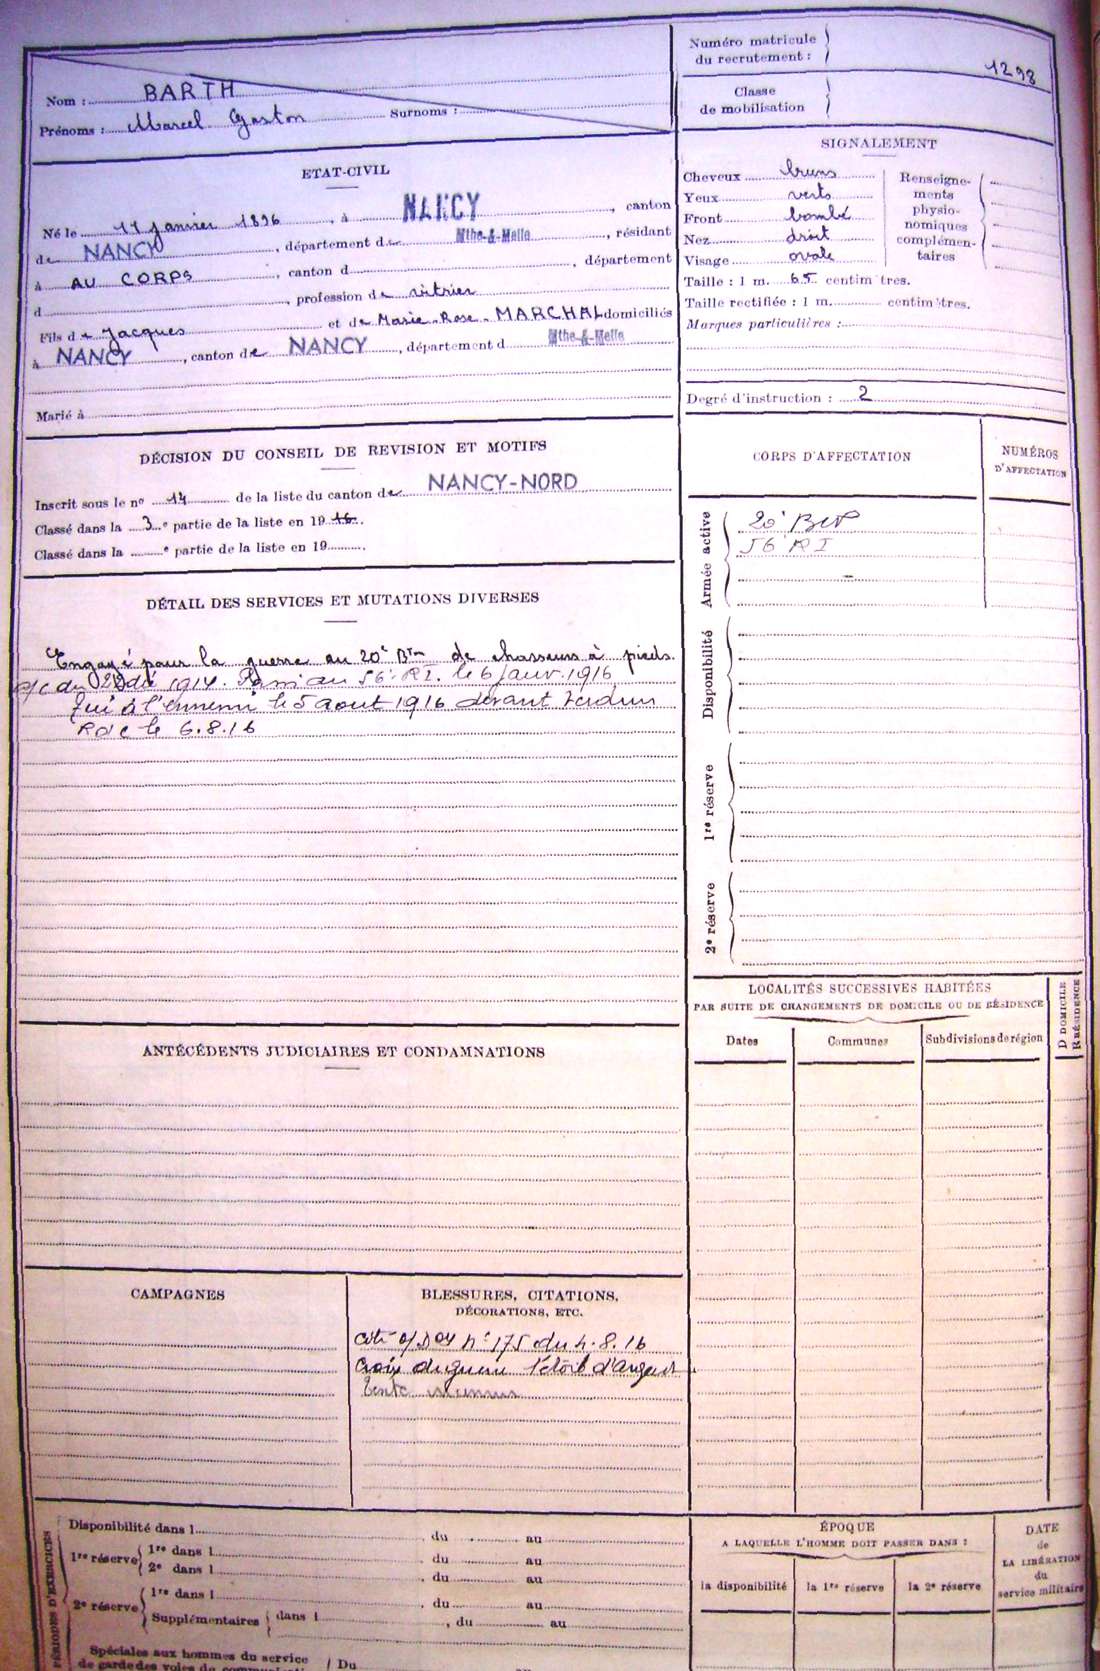 Nom : BARTH
Prénoms : Marcel Gaston Surnoms :
Numéro matricule du recrutement : 1298
Classe de mobilisation
ETAT-CIVIL
Né le janvier 1896, à NANCY, canton
de NANCY, département de Mthe-&-Melle, résidant
à AU CORPS, canton d, département
d, profession de vitrier
Fils de Jacques et de Marie-Rose-MARCHAL domiciliés
à NANCY, canton de NANCY, département d Mthe-&-Melle
Marié à
SIGNALEMENT
Cheveux bruns
Yeux verts
Front bombé
Nez droit
Visage ovale
Renseigne-
ments
physio-
nomiques
complémen-
taires
Taille : 1 m. 65 centimètres.
Taille rectifiée : 1 m. centimètres.
Marques particulières :
Degré d'instruction : 2
DÉCISION DU CONSEIL DE REVISION ET MOTIFS
Inscrit sous le no 14 de la liste du canton de NANCY-NORD
Classé dans la 3e partie de la liste en 1916.
Classé dans la e partie de la liste en 19
CORPS D'AFFECTATION
NUMÉROS
D'AFFECTATION
Armée active
20e BCP
56 RI
Disponibilité
1re réserve
2e réserve
DÉTAIL DES SERVICES ET MUTATIONS DIVERSES
Engagé pour la guerre au 20e Btn de chasseurs à pieds.
1914. Passé au 56e RI. le 6 janv. 1916
Tué à l'ennemi le 5 aout 1916 devant Verdun
RdC le 6.8.16
ANTÉCÉDENTS JUDICIAIRES ET CONDAMNATIONS
LOCALITÉS SUCCESSIVES HABITÉES
PAR SUITE DE CHANGEMENTS DE DOMICILE OU DE RÉSIDENCE
Dates
Communes
Subdivisions de région
D DOMICILE
R RÉSIDENCE
CAMPAGNES
BLESSURES, CITATIONS,
DÉCORATIONS, ETC.
Cité no 175 du 4.8.16
Croix de guerre étoile d'argent
PÉRIODES D'EXERCICES
Disponibilité dans l du au
1re réserve
1re dans l du au
2e dans l du au
2e réserve
1re dans l du au
Supplémentaires dans l, du au
Spéciales aux hommes du service
Du
ÉPOQUE
A LAQUELLE L'HOMME DOIT PASSER DANS :
la disponibilité
la 1re réserve
la 2e réserve
DATE
de
LA LIBÉRATION
du
service militaire